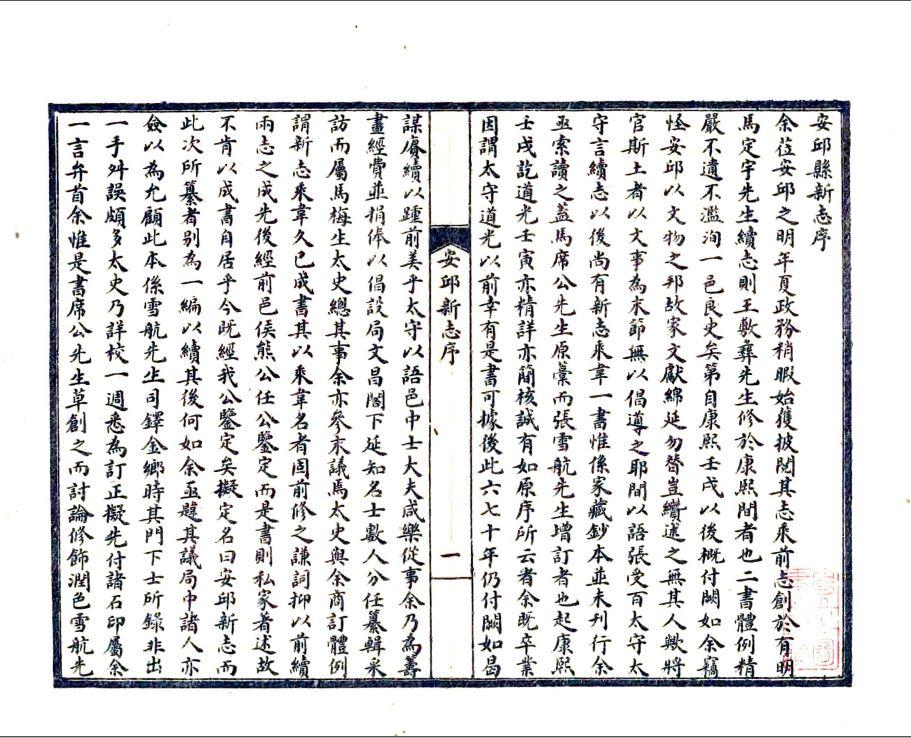 安邱縣新志序
余莅安邱之明年夏政務稍暇始獲披閱其志乘前志創於有明
馬定宇先生續志則王敷彝先生修於康熙間者也二書體例精
嚴不遺不濫洵一邑良史矣第自康熙壬戌以後概付闕如余竊
怪安邱以文物之邦故家文獻綿延勿替豈纘述之無其人歟將
官斯土者以文事為末節無以倡導之耶間以語張受百太守太
守言續志以後尚有新志乘韋一書惟係家藏鈔本並未刊行余
亟索讀之蓋馬席公先生原藳而張雪航先生增訂者也起康熙
壬戌訖道光壬寅亦精詳亦簡核誠有如原序所云者余既卒業
因謂太守道光以前幸有是書可據後此六七十年仍付闕如曷
安邱新志序
一
謀賡續以踵前美乎太守以語邑中士大夫咸樂從事余乃為籌
畫經費並捐俸以倡設局文昌閣下延知名士數人分任纂輯采
訪而屬馬梅生太史總其事余亦參末議焉太史與余商訂體例
謂新志乘韋久已成書其以乘韋名者固前修之謙詞抑以前續
兩志之成先後經前邑侯熊公任公鑒定而是書則私家著述故
不肯以成書自居乎今既經我公鑒定矣擬定名曰安邱新志而
此次所纂者別為一編以續其後何如余亟韙其議局中諸人亦
僉以為允顧此本係雪航先生司鐸金鄉時其門下士所錄非出
一手舛誤頗多太史乃詳校一週悉為訂正擬先付諸石印屬余
一言弁首余惟是書席公先生草創之而討論修飾潤色雪航先